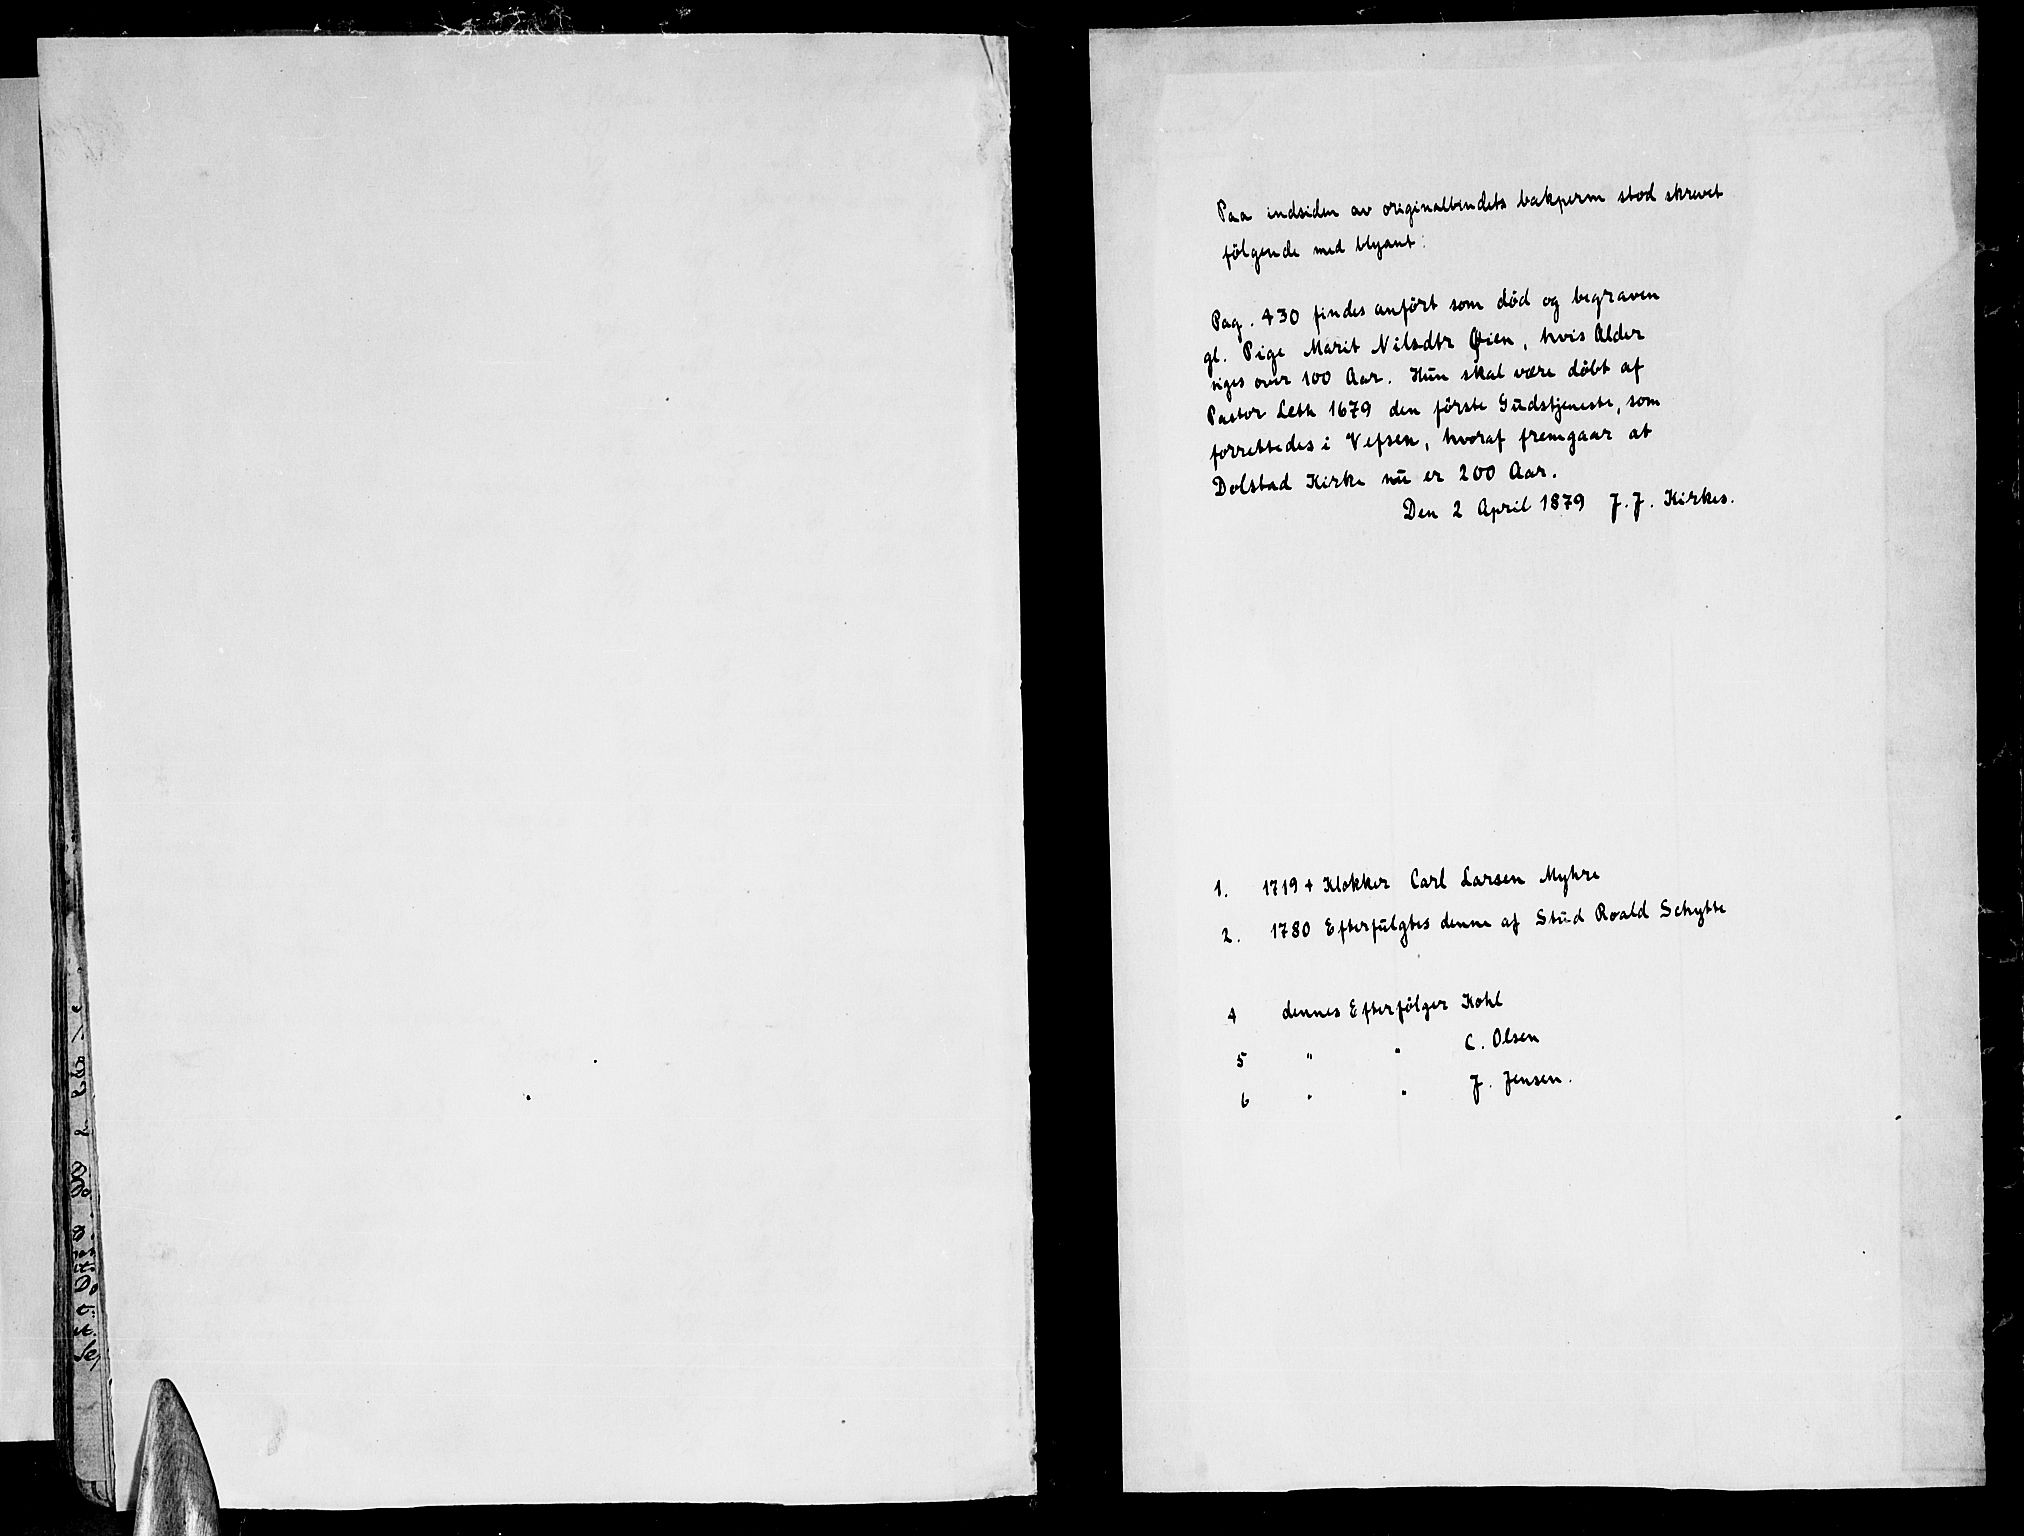 Paa indsiden av originalbindets bakperm stod skrevet
følgende med blyant:
Pag. 430 findes anført som död og begraven
gl. Pige Marit Nilsdtr Øien, hvis Alder
siges over 100 Aar. Hun skal være döbt af
Pastor Leth 1679 den förste Gudstjeneste, som
forrettedes i Vefsen, hvoraf fremgaar at
Dolstad Kirke nu er 200 Aar.
Den 2 April 1879 J. J. Kirkes.
1. 1719 + Klokker Carl Larsen Myhre
2. 1780 Efterfulgtes denne af Stud Roald Schytte
4 dennes Efterfölger Kohl
5 " " C. Olsen
6 " " J. Jensen.